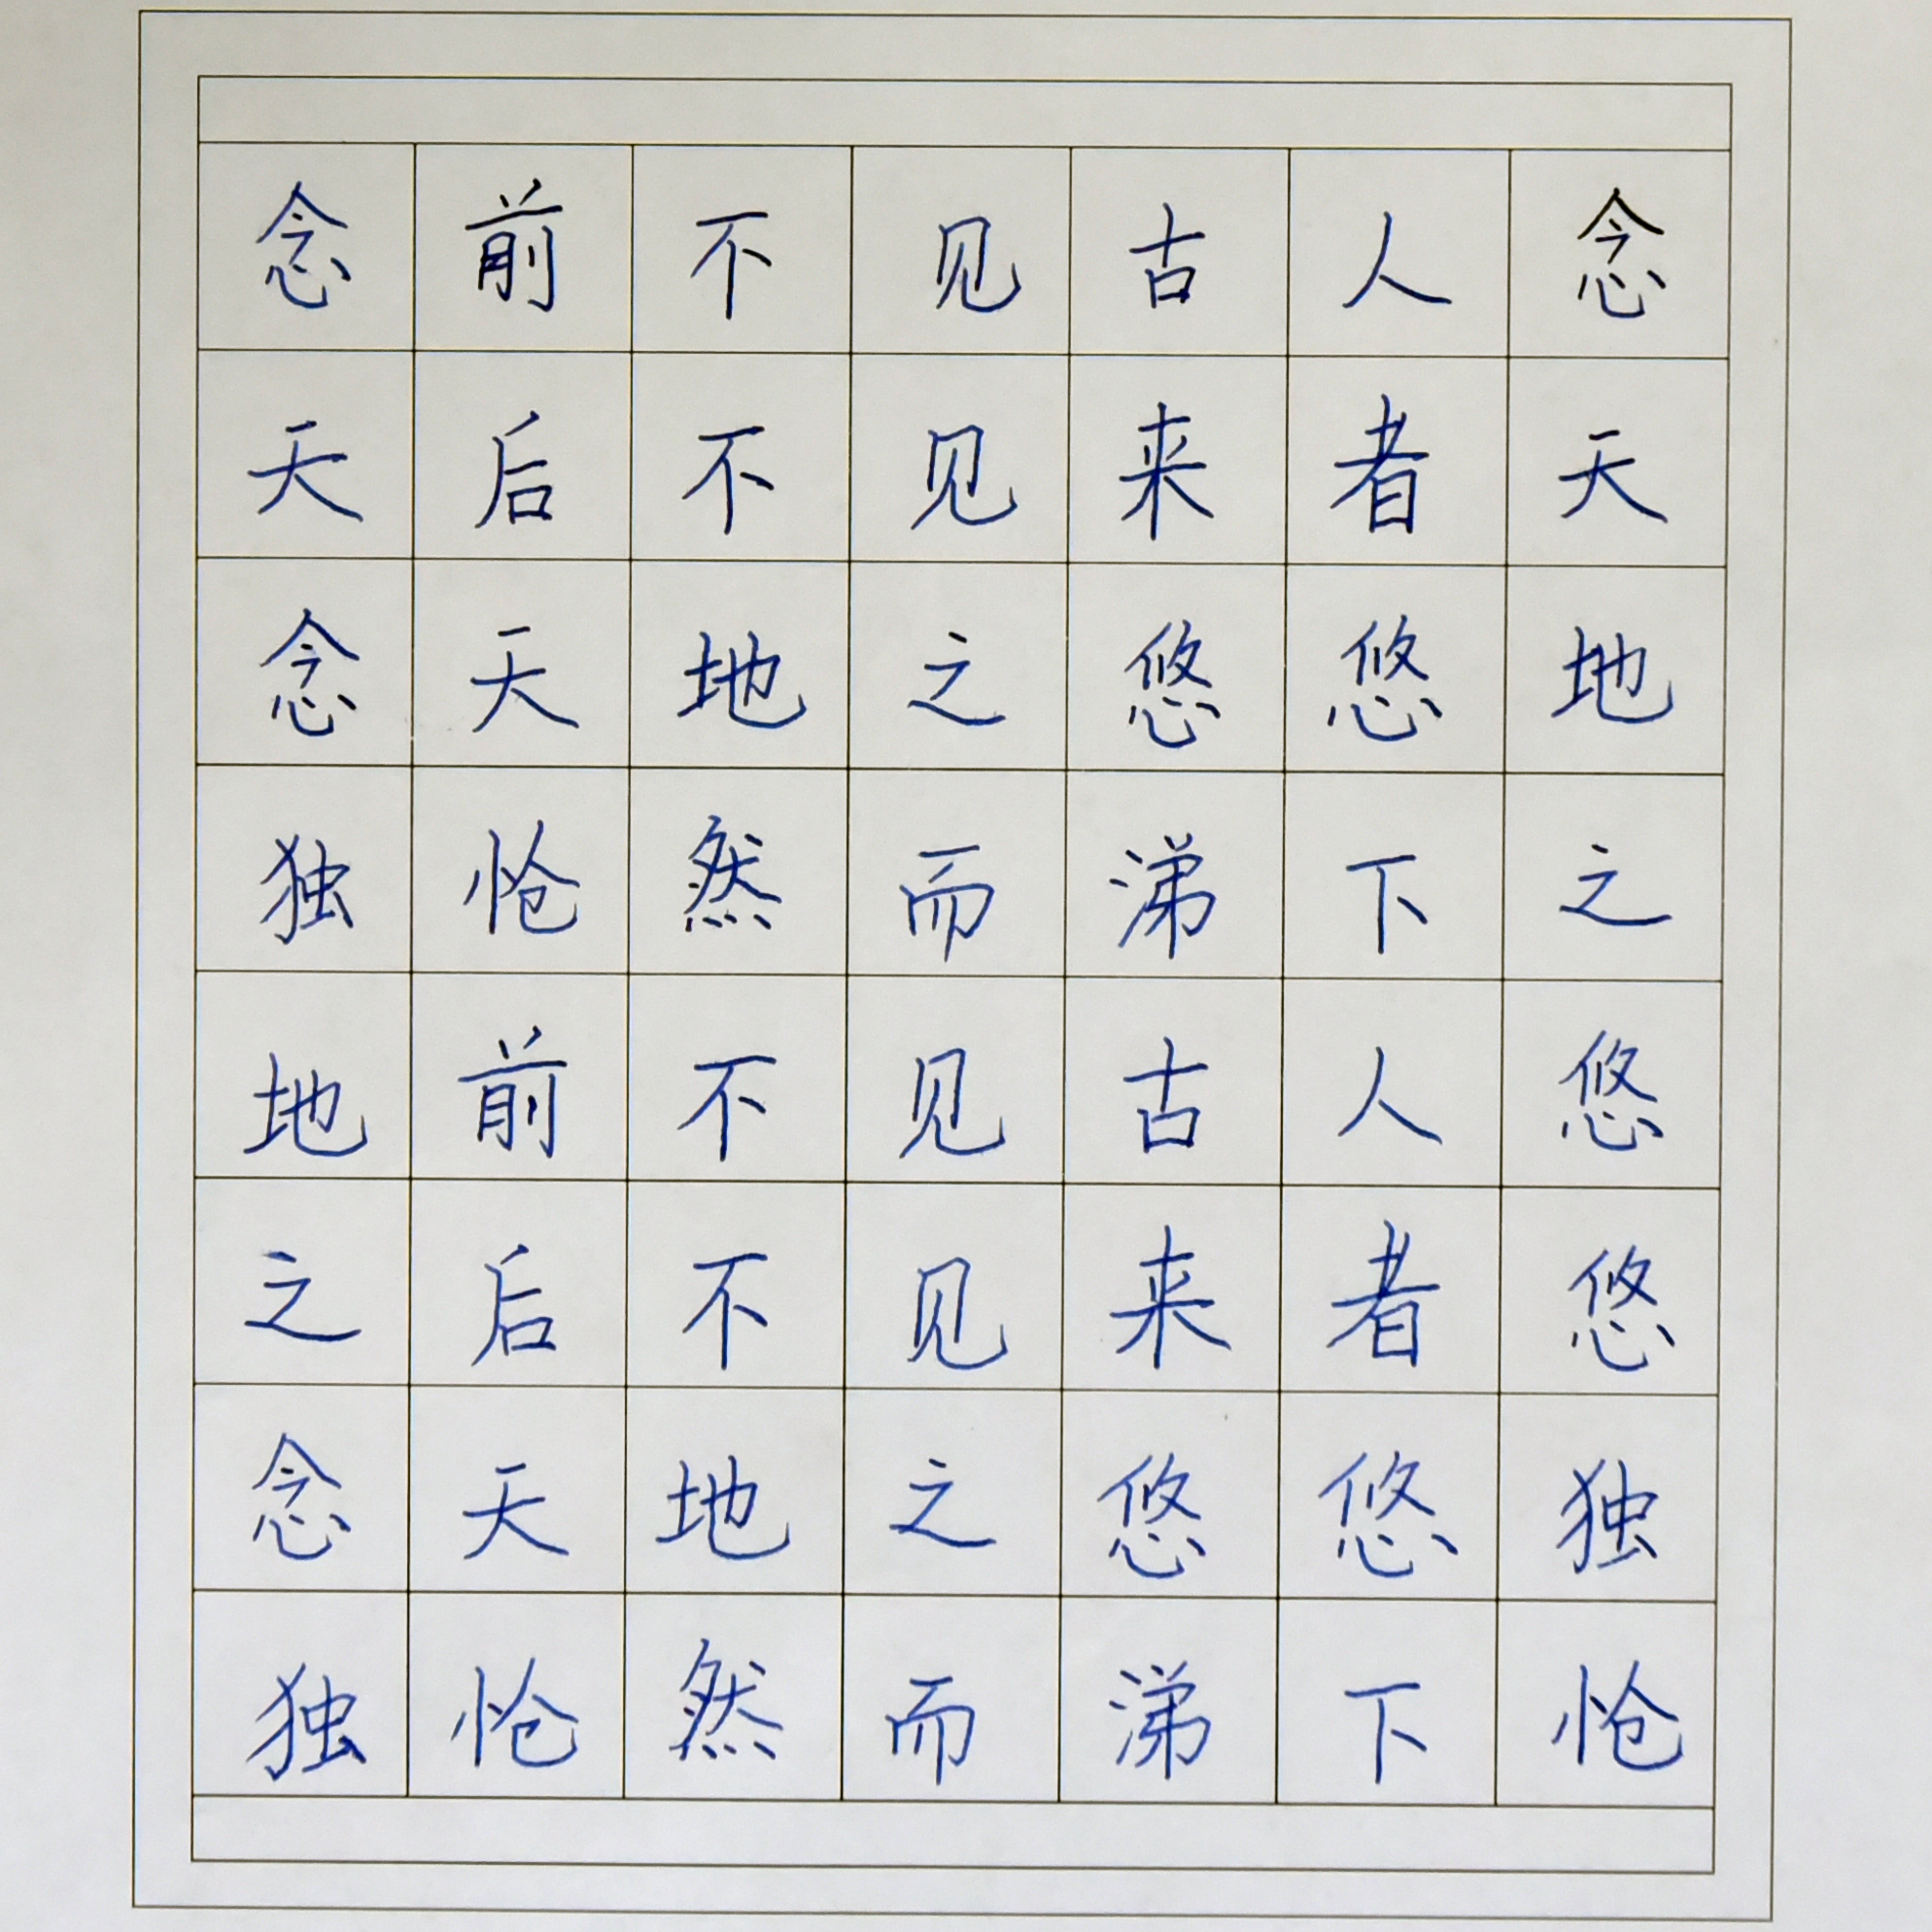 念前不见古人念
天后不见来者天
念天地之悠悠地
独怆然而涕下之
地前不见古人悠
之后不见来者悠
念天地之悠悠独
独怆然而涕下怆